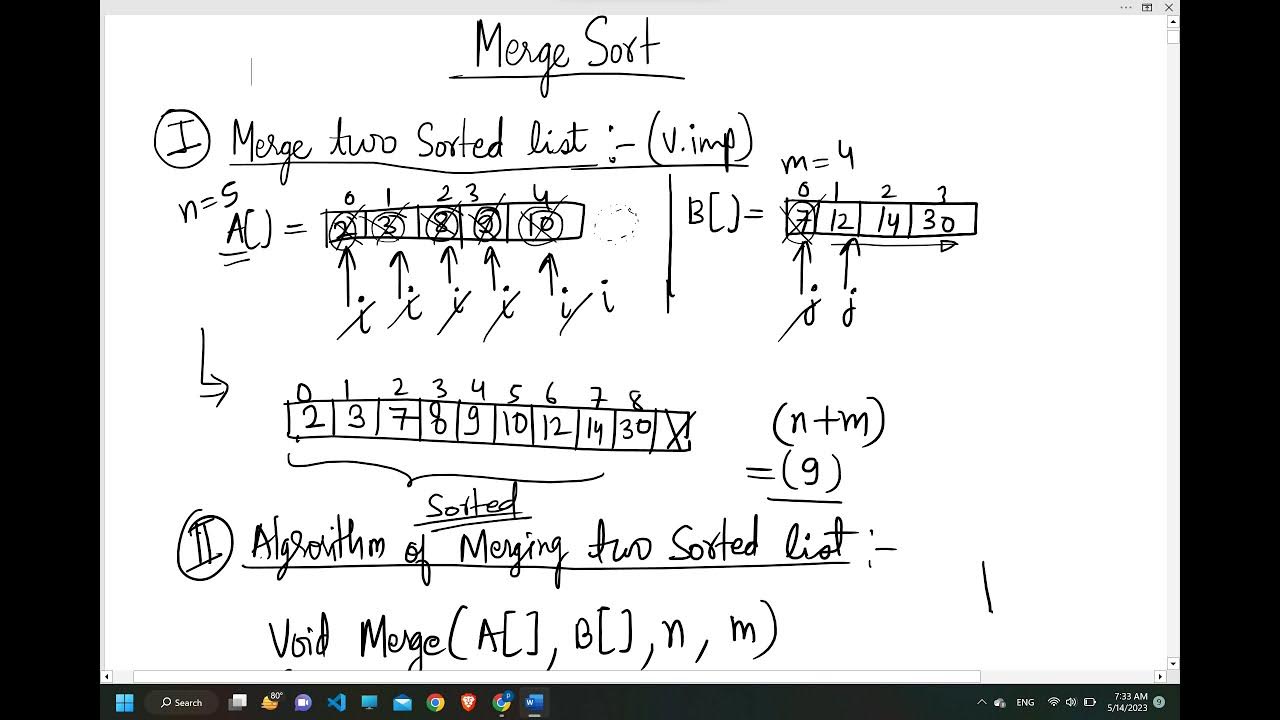 Merge Sort
I Merge two Sorted list :- (v.imp)
n=5
m=4
0 1 2 3 4
0 1 2 3
A[] = 2 3 8 9 10
B[] = 7 12 14 30
i i i i i i
j j
0 1 2 3 4 5 6 7 8
2 3 7 8 9 10 12 14 30 X
(n+m)
=(9)
Sorted
II Algorithm of Merging two Sorted list :-
Void Merge(A[], B[], n, m)
Search
80°
ENG
7:33 AM
5/14/2023
9